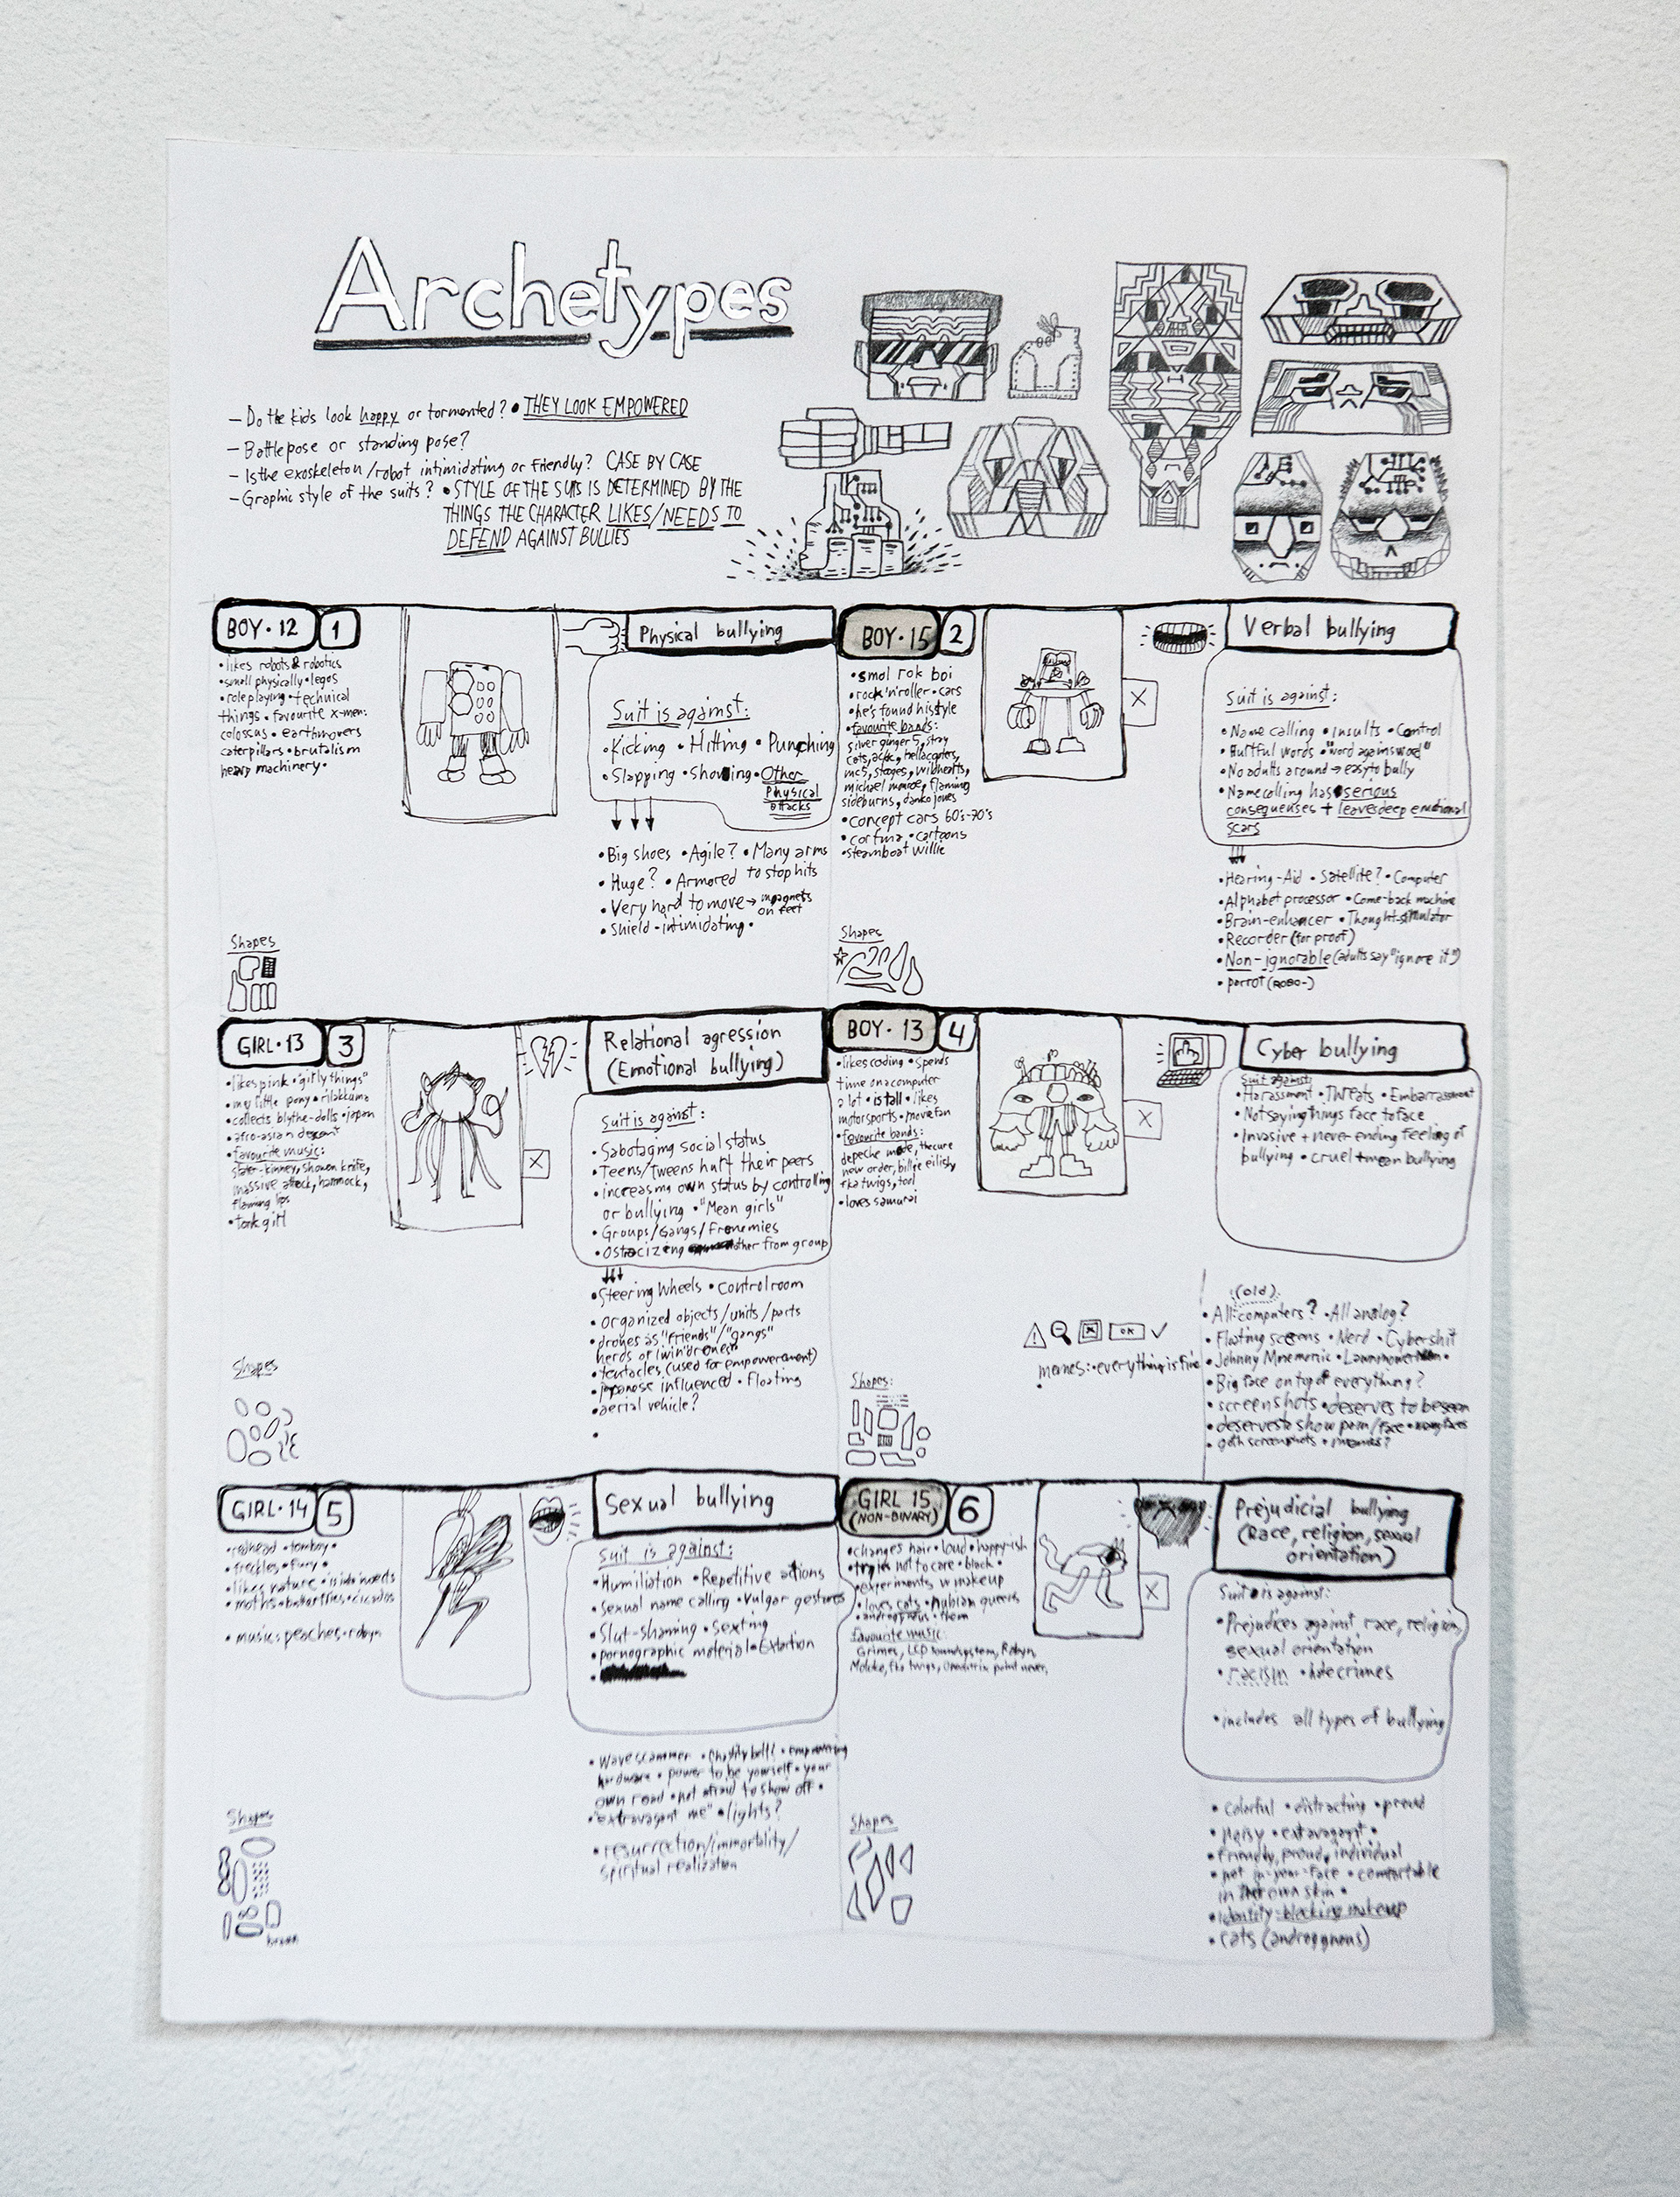 Archetypes
– Do the kids look happy or tormented? • THEY LOOK EMPOWERED
– Battle pose or standing pose?
– Is the exoskeleton/robot intimidating or friendly? CASE BY CASE
– Graphic style of the suits? • STYLE OF THE SUITS IS DETERMINED BY THE
THINGS THE CHARACTER LIKES/NEEDS TO
DEFEND AGAINST BULLIES
BOY • 12
1
• likes robots & robotics
• small physically • legos
• roleplaying • technical
things • favourite x-men:
colossus • earthmovers
caterpillars • brutalism
heavy machinery •
Shapes
Physical bullying
Suit is against:
• Kicking • Hitting • Punching
• Slapping • Shoving • Other
Physical
attacks
• Big shoes • Agile? • Many arms
to stop hits
• Huge? • Armored
• Very hard to move → magnets
on feet
• Shield - intimidating •
BOY • 15
2
• smol rok boi
• rock'n'roller • cars
• he's found his style
• favourite bands:
silver ginger 5, stray
cats, hellacopters,
mc5, stooges, wildhearts,
michael monroe, flaming
sideburns, danko jones
• concept cars 60's-70's
• cartoons
• steamboat willie
Shapes
X
Verbal bullying
Suit is against:
• Name calling • insults • Control
• Hurtful words • "word against word"
• No adults around → easy to bully
• Namecalling has serious
consequenses + leaves deep emotional
scars
• Hearing-Aid • Satellite? • Computer
• Alphabet processor • Come-back machine
• Brain-enhancer • Thought-stimulator
• Recorder (for proof)
• Non-ignorable (adults say "ignore it")
• parrot (ROBO-)
GIRL • 13
3
• likes pink • "girly things"
• my little pony • rilakkuma
• collects blythe-dolls • japan
• afro-asian descent
• favourite music:
sleater-kinney, shonen knife,
massive attack, hammock,
flaming lips
• tank girl
Shapes
X
Relational agression
(Emotional bullying)
Suit is against:
• Sabotaging social status
• Teens/tweens hurt their peers
• increasing own status by controlling
or bullying • "Mean girls"
• Groups/Gangs/Frenemies
• Ostacizing other from group
• Steering Wheels • Control room
• organized objects/units/parts
• drones as "friends"/"gangs"
herds of "win'drones"
• tentacles (used for empowerment)
• japanese influenced • Floating
• aerial vehicle?
BOY • 13
4
• likes coding • spends
time on a computer
a lot • is tall • likes
motorsports • movie fan
• favourite bands:
depeche mode, the cure
new order, billie eilish,
fka twigs, tool
• loves samurai
Shapes:
X
OK
memes: • everything is fine
Cyber bullying
Suit against:
• Harassment • Threats • Embarrassment
• Not saying things face to face
• Invasive + never-ending feeling of
bullying • cruel + mean bullying
(old)
• All computers? • All analog?
• Floating screens • Nerd • Cybershit
• Johnny Mnemonic
• Big face on top of everything?
• screenshots • deserves to be seen
• deserves to show
GIRL • 14
5
• redhead • tomboy •
• freckles • fiery •
• likes nature • insects
• moths • butterflies • cicadas
• music: peaches • robyn
Shapes
Sexual bullying
Suit is against:
• Humiliation • Repetitive actions
• Sexual name calling • Vulgar gestures
• Slut-shaming • Sexting
• pornographic material • Extortion
• Chastity belt? • empowering
hardware • power to be yourself • your
own road • not afraid to show off •
• "extravagant me" • lights?
• resurrection/immortality/
spiritual realization
GIRL 15
(NON-BINARY)
6
• changes hair • loud • happy-ish
not to care • black •
• experiments w makeup
• loves cats • nubian queens
• them
favourite music:
Grimes, LCD soundsystem, Robyn,
Shapes
X
Prejudicial bullying
(Race, religion, sexual
orientation)
Suit is against:
• Prejudices against race, religion,
sexual orientation
• racism • hate crimes
• includes all types of bullying
• colorful • distracting • proud
• noisy • extravagant •
• friendly, proud, individual
• not in-your-face • comfortable
in their own skin •
• identity-blocking makeup
• cats (androgynous)